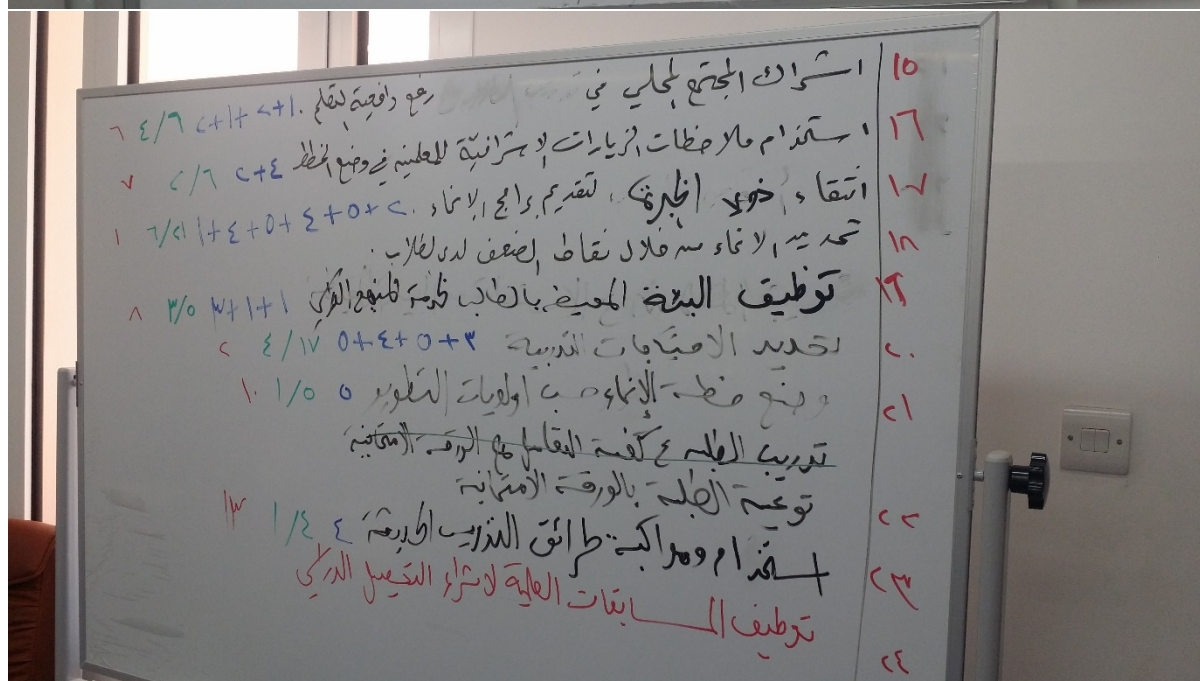 ١٥ اشراك المجتمع المحلي في رفع دافعية التعلم ١+٢+١+٢ ٤/٦ ٦
١٦ استخدام ملاحظات الزيارات الاشرافية للمعلمين في وضع الخطط ٤+٢ ٢/٦ ٧
١٧ انتقاء ذوي الخبرة لتقديم برامج الانماء ٢+٥+٤+٥+٤+١ ٦/٢١ ١
١٨ تحديد الانماء من خلال نقاط الضعف لدى الطلاب.
١٩ توظيف البيئة المحيطة بالطالب خدمة للمنهج الدراسي ١+١+٣ ٣/٥ ٨
٢٠ تحديد الاحتياجات التدريبية ٣+٥+٤+٥ ٤/١٧ ٢
٢١ وضع خطة الإنماء حسب اولويات التطوير ٥ ١/٥ ١٠
تدريب الطلبة ع كيفية التعامل مع الورقة الامتحانية
توعية الطلبة بالورقة الامتحانية
٢٢ استخدام ومواكبة طرائق التدريب الحديثة ٤ ١/٤ ١٣
٢٣ توظيف المسابقات العلمية لاثراء التحصيل الدراسي
٢٤